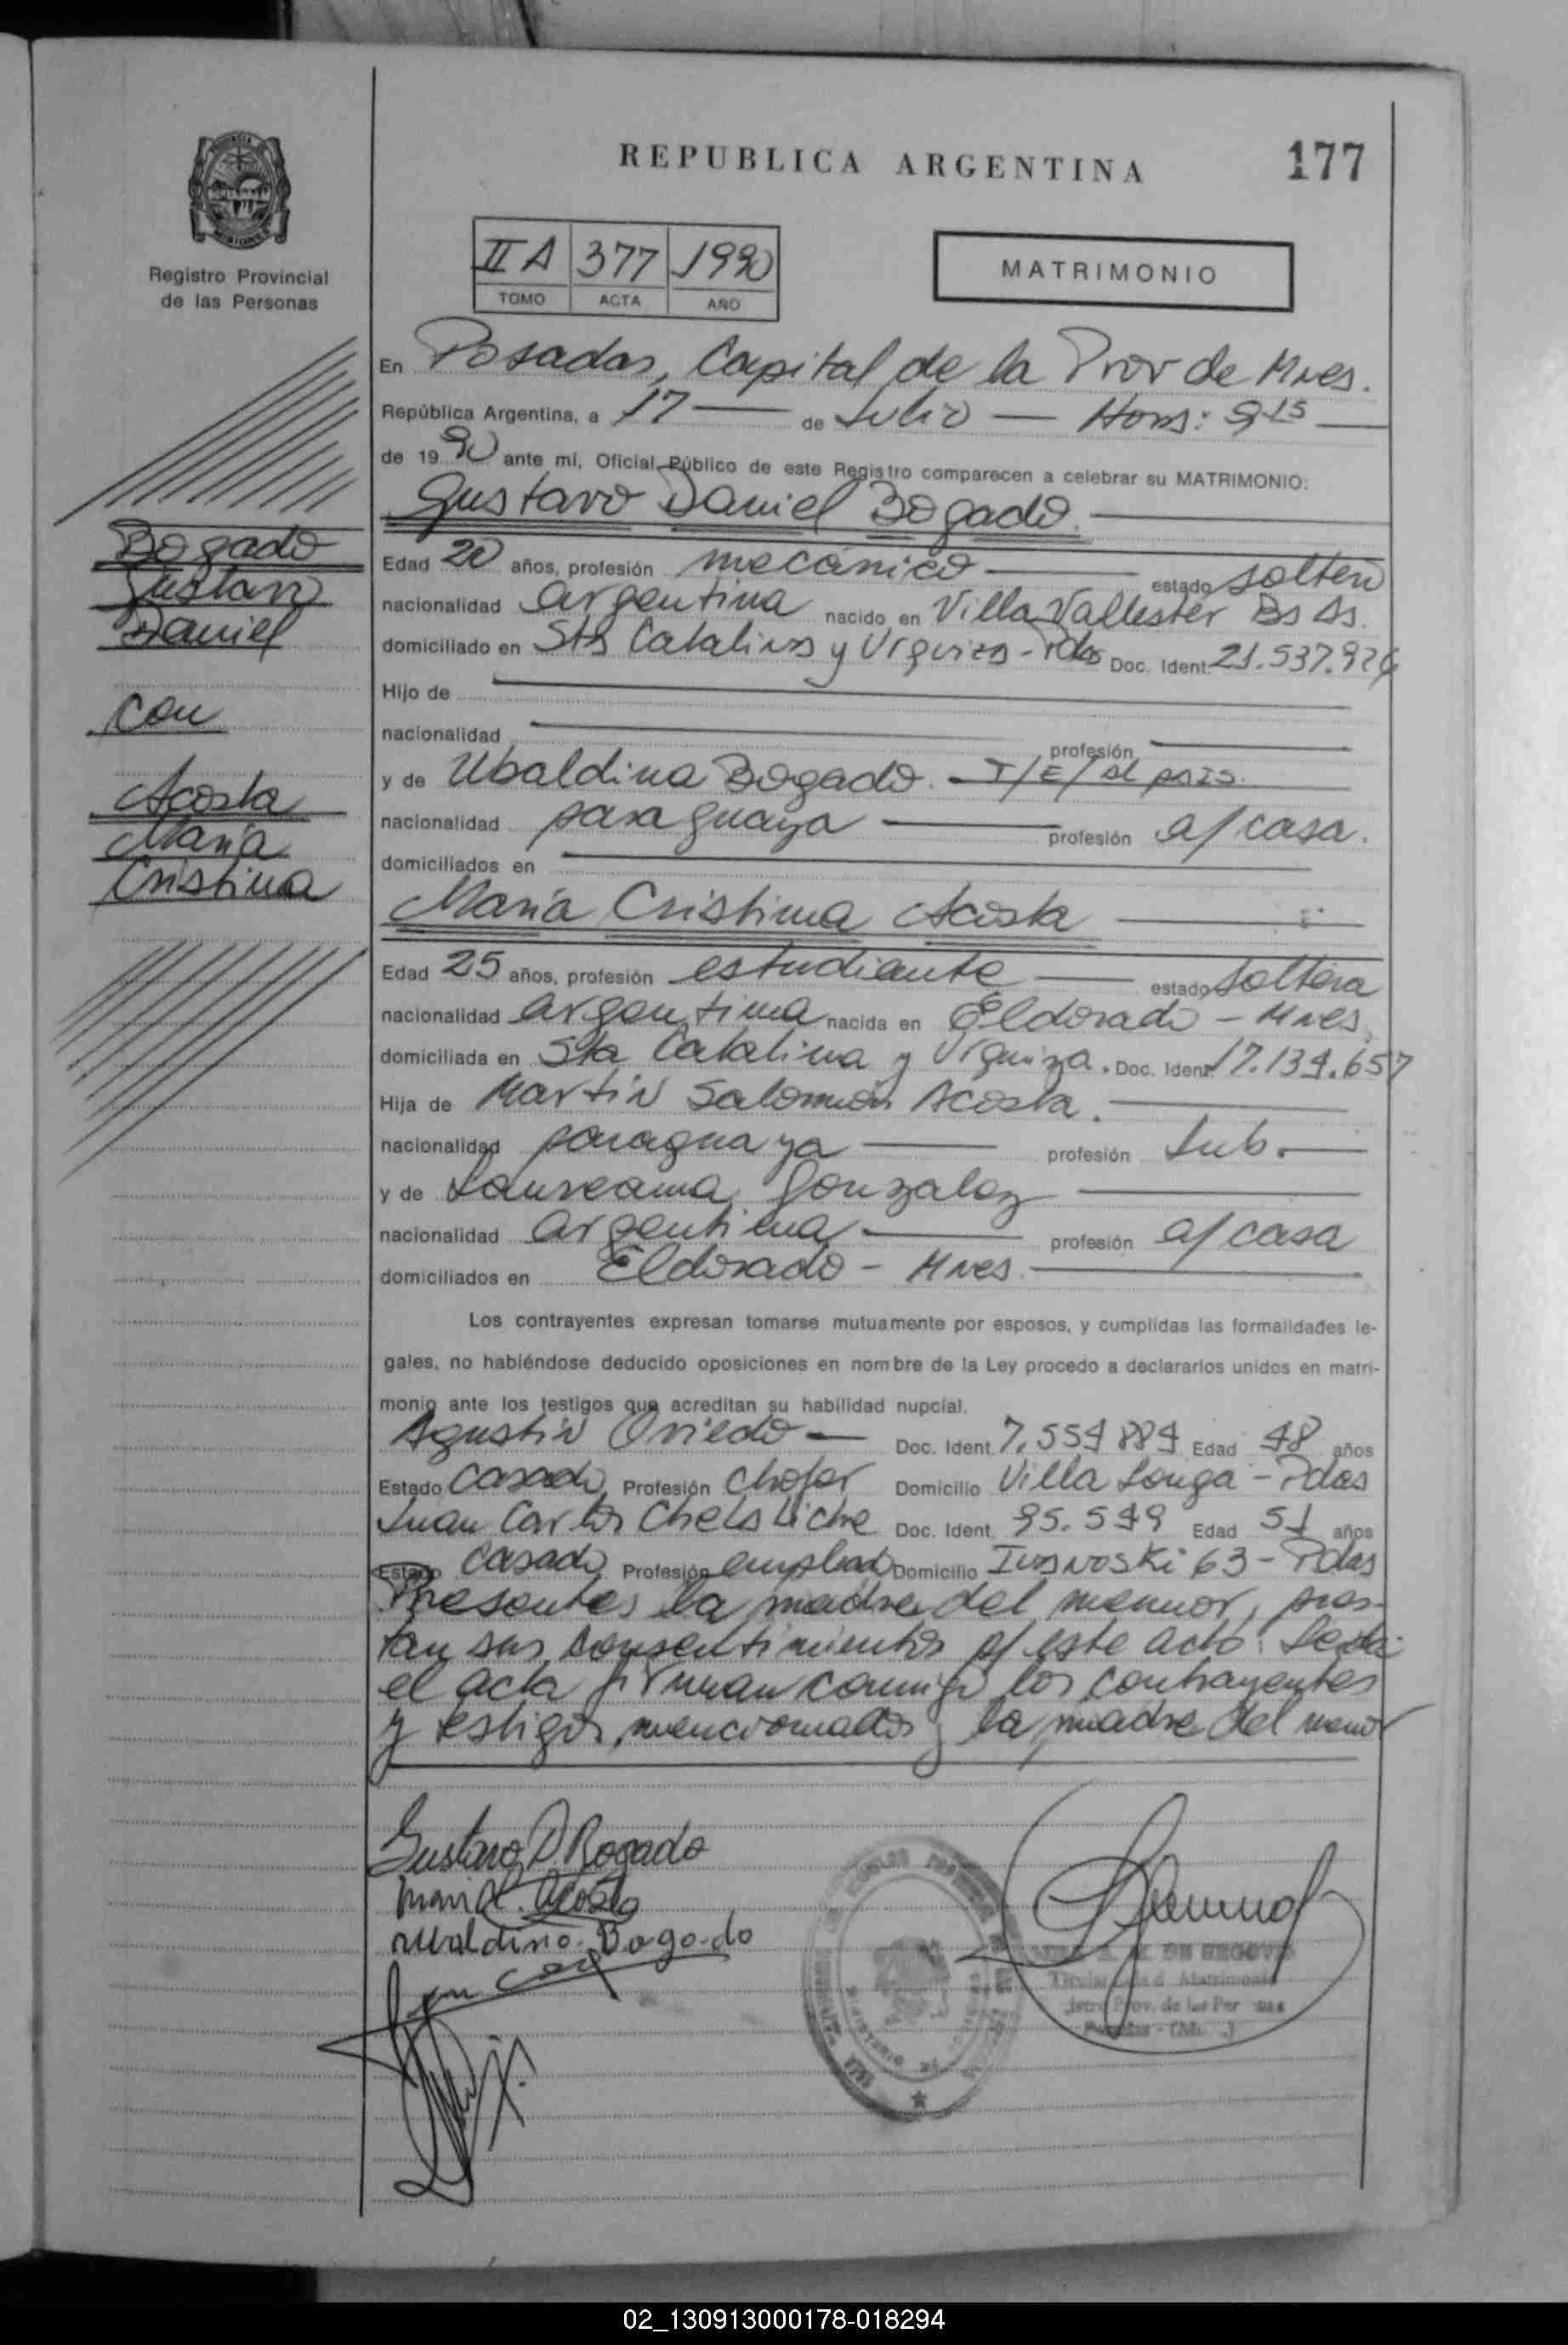 REPUBLICA ARGENTINA
177
MISIONES
Registro Provincial
de las Personas
II A 377 1990
TOMO ACTA AÑO
MATRIMONIO
En Posadas, Capital de la Prov de Mnes.
República Argentina, a 17 de Julio Hors: 9 15
de 19 90 ante mí, Oficial Público de este Registro comparecen a celebrar su MATRIMONIO:
Gustavo Daniel Bogado.
Bogado
Gustavo
Daniel
con
Acosta
María
Cristina
Edad 20 años, profesión mecánico estado soltero
nacionalidad argentina nacido en Villa Vallester Bs As.
domiciliado en Sta Catalina y Urquiza - Pdas Doc. Ident. 21.537.926
Hijo de
nacionalidad profesión
y de Ubaldina Bogado. T/E/ del país.
nacionalidad paraguaya profesión a/ casa.
domiciliados en
María Cristina Acosta
Edad 25 años, profesión estudiante estado soltera
nacionalidad argentina nacida en Eldorado - Mnes.
domiciliada en Sta Catalina y Urquiza. Doc. Ident. 17.139.657
Hija de Martín Salomón Acosta.
nacionalidad paraguaya profesión Jub.
y de Laureana Gonzalez
nacionalidad argentina profesión a/ casa
domiciliados en Eldorado - Mnes.
Los contrayentes expresan tomarse mutuamente por esposos, y cumplidas las formalidades le-
gales, no habiéndose deducido oposiciones en nombre de la Ley procedo a declararlos unidos en matri-
monio ante los testigos que acreditan su habilidad nupcial.
Agustín Oviedo Doc. Ident. 7.554 884 Edad 48 años
Estado Casado Profesión Chofer Domicilio Villa Longa - Pdas
Juan Carlos Doc. Ident. 95.549 Edad 51 años
Estado Casado Profesión empleado Domicilio Ivanoski 63 - Pdas
Presentes la madre del menor, pres-
tan sus consentimientos p/ este acto. Leída
el acta firman conmigo los contrayentes
y testigos mencionados y la madre del menor
Gustavo D Bogado
Maria C. Acosta
Ubaldina Bogado
DE SEGOVIA
Titular Matrimonio
Prov. de las Per
02_130913000178-018294